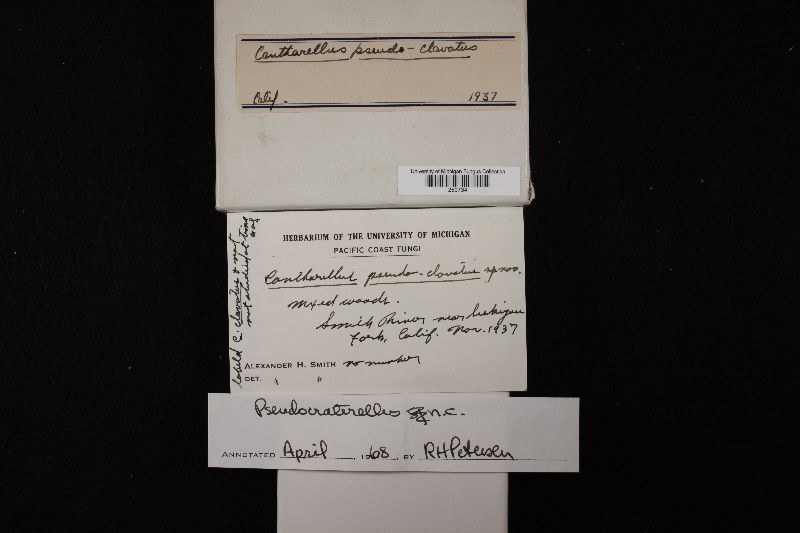 Cantharellus pseudo-clavatus
Calif. 1937
University of Michigan Fungus Collection
HERBARIUM OF THE UNIVERSITY OF MICHIGAN
PACIFIC COAST FUNGI
Cantharellus pseudo-clavatus sp nov.
mixed woods.
Smith River near
Fork, Calif. Nov. 1937
ALEXANDER H. SMITH no number
DET. " "
C. clavatus & not
not studied at time
Pseudocraterellus n.c.
ANNOTATED April, 1968, BY RHPetersen